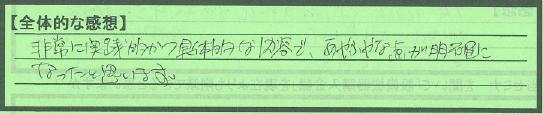 【全体的な感想】
非常に実践的かつ具体的な内容で、あやふやな点が明確に
なったと思います。